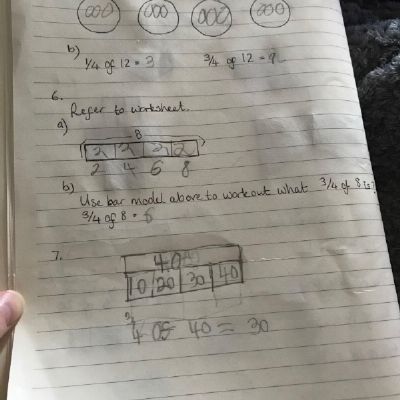 000 000 000 000
b)
1/4 of 12 = 3 3/4 of 12 = 9
6.
Refer to worksheet.
a)
8
2 2 2 2
2 4 6 8
b)
Use bar model above to work out what 3/4 of 8 is?
3/4 of 8 = 6
7.
40
10 20 30 40
3/4 of 40 = 30